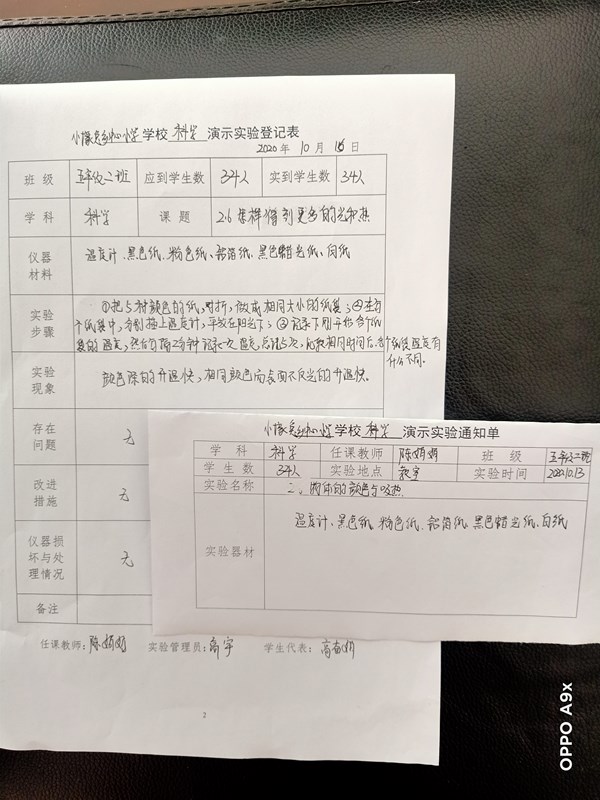 学校 科学 演示实验登记表
2020年 10月 16日
班级 五年级二班 应到学生数 34人 实到学生数 34人
学科 科学 课题 2.6 怎样得到更多的光和热
仪器材料 温度计、黑色纸、粉色纸、铝箔纸、黑色蜡光纸、白纸
实验步骤 ①把5种颜色的纸,对折,做成相同大小的纸袋;②在每
个纸袋中,分别插上温度计,平放在阳光下;③记录下刚开始各个纸
袋的温度,然后每隔2分钟记录一次温度,
相同时间后,各个纸袋温度有
什么不同。
实验现象 颜色深的升温快,相同颜色而表面不反光的升温快。
存在问题 无
改进措施 无
仪器损坏与处理情况 无
备注
任课教师:陈娟娟 实验管理员:高宇 学生代表:
2
学校 科学 演示实验通知单
学科 科学 任课教师 陈娟娟 班级 五年级二班
学生数 34人 实验地点 教室 实验时间 2020.10.13
实验名称 二、物体的颜色与吸热
实验器材 温度计、黑色纸、粉色纸、铝箔纸、黑色蜡光纸、白纸
OPPO A9x